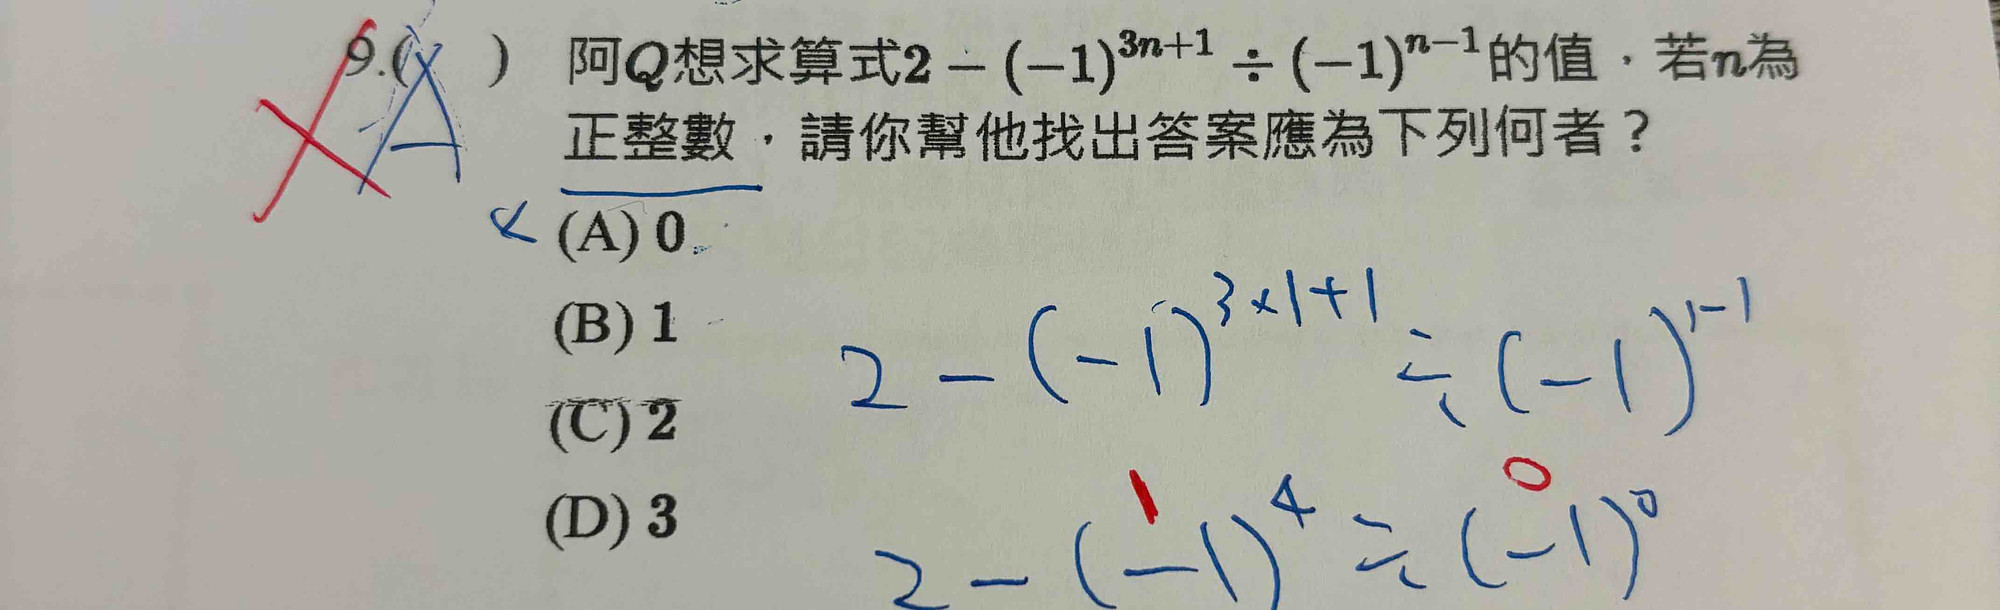 9.( A ) 阿Q想求算式2 − (−1)^{3n+1} ÷ (−1)^{n−1}的值，若n為
正整數，請你幫他找出答案應為下列何者？
(A) 0
(B) 1
(C) 2
(D) 3
2 − (−1)^{3×1+1} ÷ (−1)^{1−1}
1 0
2 − (−1)^4 ÷ (−1)^0